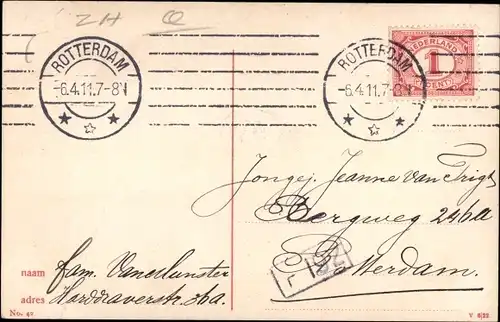 ZH Q
ROTTERDAM
-6.4.11.7-8N
ROTTERDAM
-6.4.11.7-8N
NEDERLAND
1
CENT
Jongej. Jeanne van Trigt
Bergweg 246a
Rotterdam.
naam fam. Vanmunster
adres Harddraverstr. 36a.
No. 42
V 8/22